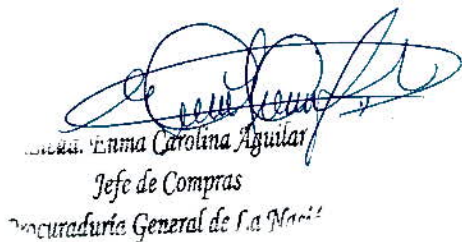 Enma Carolina Aguilar
Jefe de Compras
Procuraduría General de La